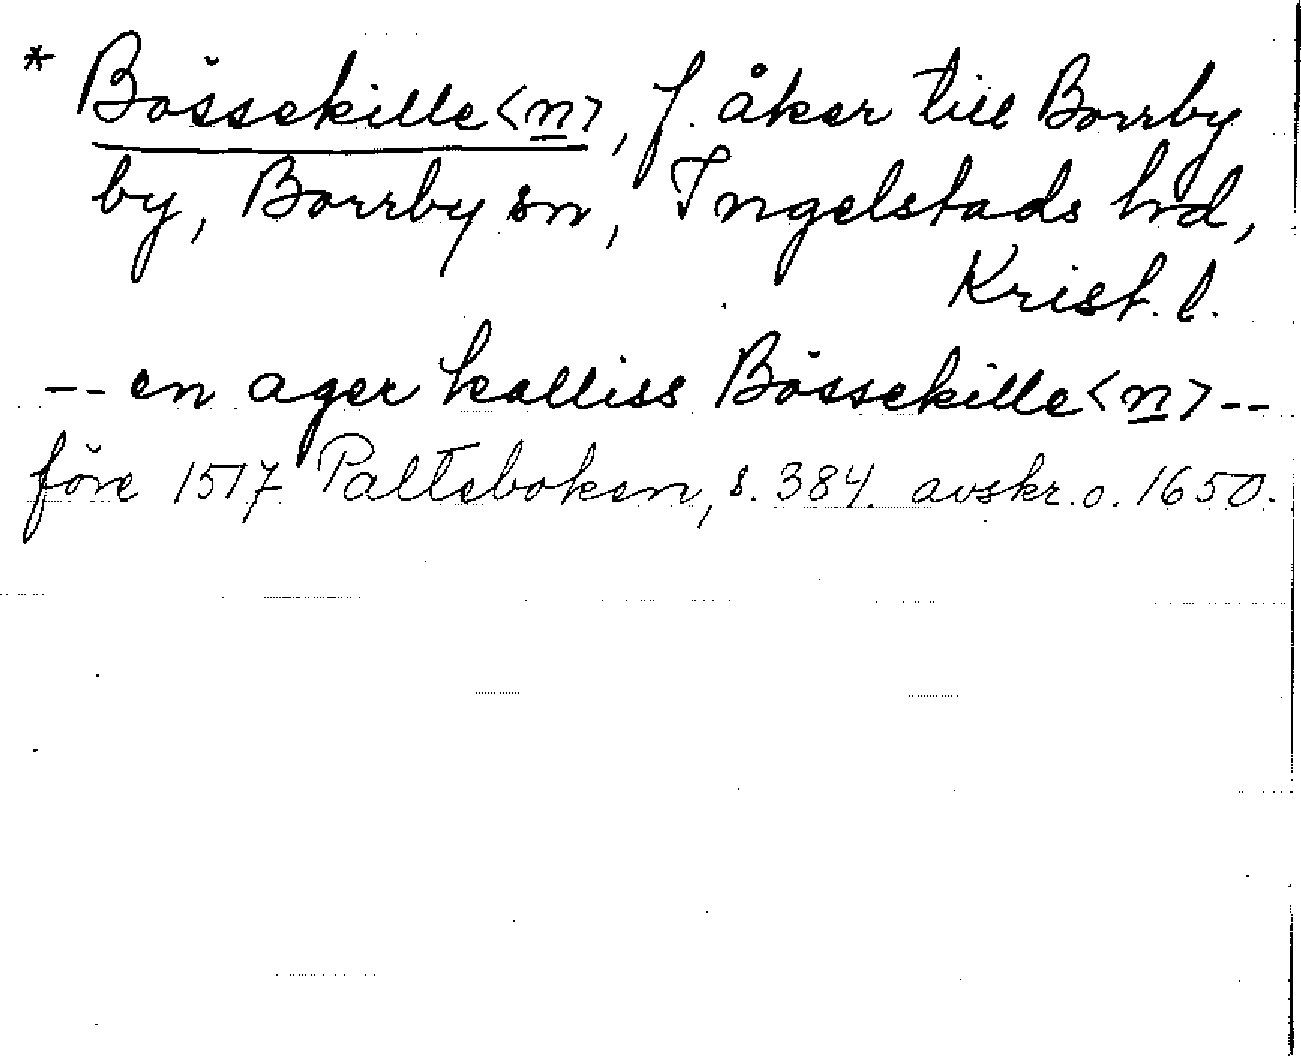 * Bössekille<n>, f. åker till Borrby
by, Borrby sn, Ingelstads hrd,
Krist. l.
-- en ager kalliss Bössekille<n> --
före 1517 Palteboken, s. 384. avskr. o. 1650.